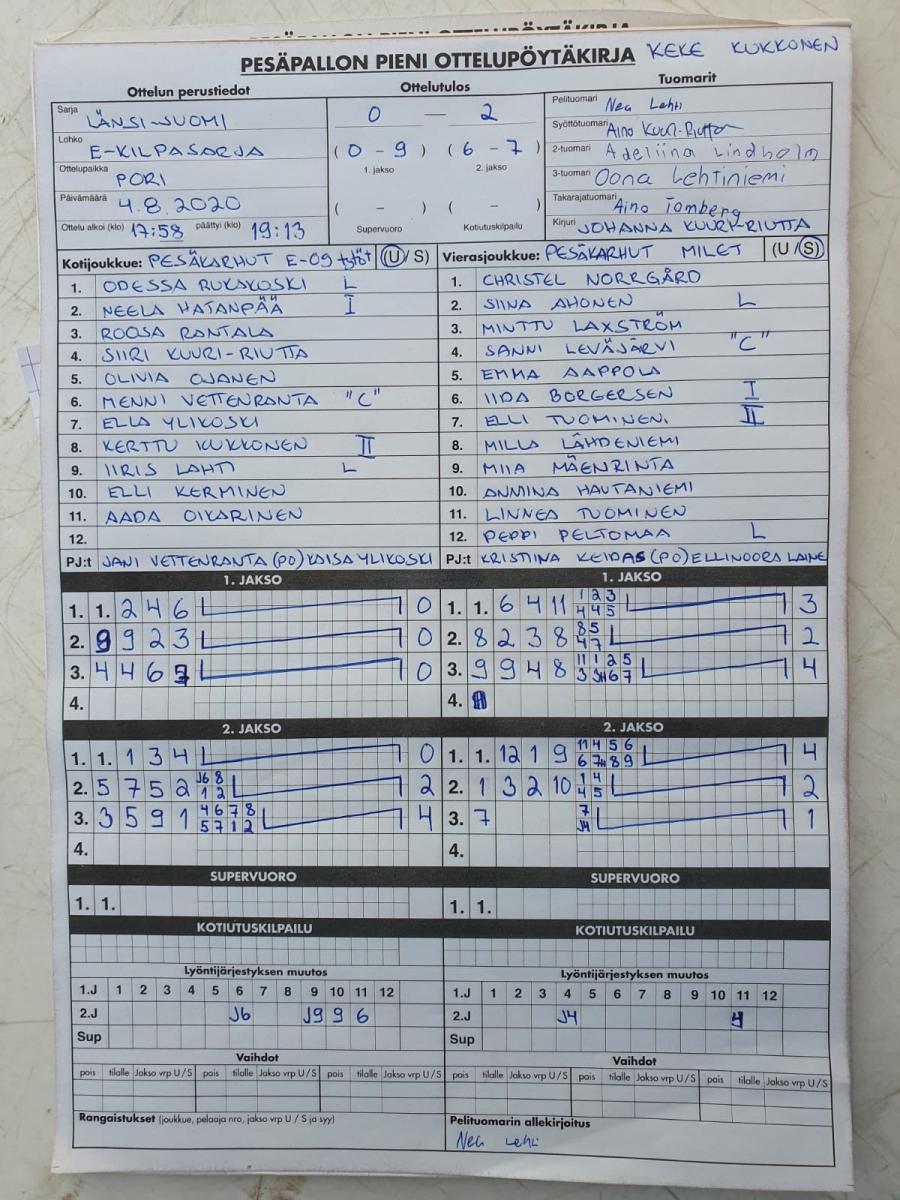 PESÄPALLON PIENI OTTELUPÖYTÄKIRJA KEKE KUKKONEN
Ottelun perustiedot Ottelutulos Tuomarit
Sarja LÄNSI-SUOMI
Lohko E-KILPASARJA
Ottelupaikka PORI
Päivämäärä 4.8.2020
Ottelu alkoi (klo) 17:58 päättyi (klo) 19:13
0 — 2
(0 - 9) (6 - 7)
1. jakso 2. jakso
( - ) ( - )
Supervuoro Kotiutuskilpailu
Pelituomari Nea Lehti
Syöttötuomari Aino Kuuri-Riutta
2-tuomari Adeliina Lindholm
3-tuomari Oona Lehtiniemi
Takarajatuomari Aino Tomberg
Kirjuri JOHANNA KUURI-RIUTTA
Kotijoukkue: PESÄKARHUT E-09 tytöt (U/S)
1. ODESSA RUKAKOSKI L
2. NEELA HATANPÄÄ I
3. ROOSA RANTALA
4. SIIRI KUURI-RIUTTA
5. OLIVIA OJANEN
6. MENNI VETTENRANTA "C"
7. ELLA YLIKOSKI
8. KERTTU KUKKONEN II
9. IIRIS LAHTI L
10. ELLI KERMINEN
11. AADA OIKARINEN
12.
PJ:t JANI VETTENRANTA (PO) KAISA YLIKOSKI
Vierasjoukkue: PESÄKARHUT MILET (U/S)
1. CHRISTEL NORRGÅRD
2. SIINA AHONEN L
3. MINTTU LAXSTRÖM
4. SANNI LEVÄJÄRVI "C"
5. EMMA AAPPOLA
6. IIDA BORGERSEN I
7. ELLI TUOMINEN. II
8. MILLA LÄHDENIEMI
9. MIIA MÄENRINTA
10. ANNIINA HAUTANIEMI
11. LINNEA TUOMINEN
12. PEPPI PELTOMAA L
PJ:t KRISTIINA KEIDAS (PO) ELLINOORA LAINE
1. JAKSO
1. 1. 2 4 6 0
2. 9 9 2 3 0
3. 4 4 6 7 0
4.
2. JAKSO
1. 1. 1 3 4 0
2. 5 7 5 2 J6 8 1 2 2
3. 3 5 9 1 4 6 7 8 5 7 1 2 4
4.
SUPERVUORO
1. 1.
KOTIUTUSKILPAILU
1. JAKSO
1. 1. 6 4 11 1 2 3 4 4 5 3
2. 8 2 3 8 8 5 4 7 2
3. 9 9 4 8 11 1 2 5 3 J4 6 7 4
4.
2. JAKSO
1. 1. 12 1 9 11 4 5 6 6 7 8 9 4
2. 1 3 2 10 1 4 4 5 2
3. 7 7 J4 1
4.
SUPERVUORO
1. 1.
KOTIUTUSKILPAILU
Lyöntijärjestyksen muutos
1.J 1 2 3 4 5 6 7 8 9 10 11 12
2.J J6 J9 9 6
Sup
Vaihdot
pois tilalle Jakso vrp U/S pois tilalle Jakso vrp U/S pois tilalle Jakso vrp U/S
Rangaistukset (joukkue, pelaaja nro, jakso vrp U/S ja syy)
Lyöntijärjestyksen muutos
1.J 1 2 3 4 5 6 7 8 9 10 11 12
2.J J4
Sup
Vaihdot
pois tilalle Jakso vrp U/S pois tilalle Jakso vrp U/S pois tilalle Jakso vrp U/S
Pelituomarin allekirjoitus
Nea Lehti